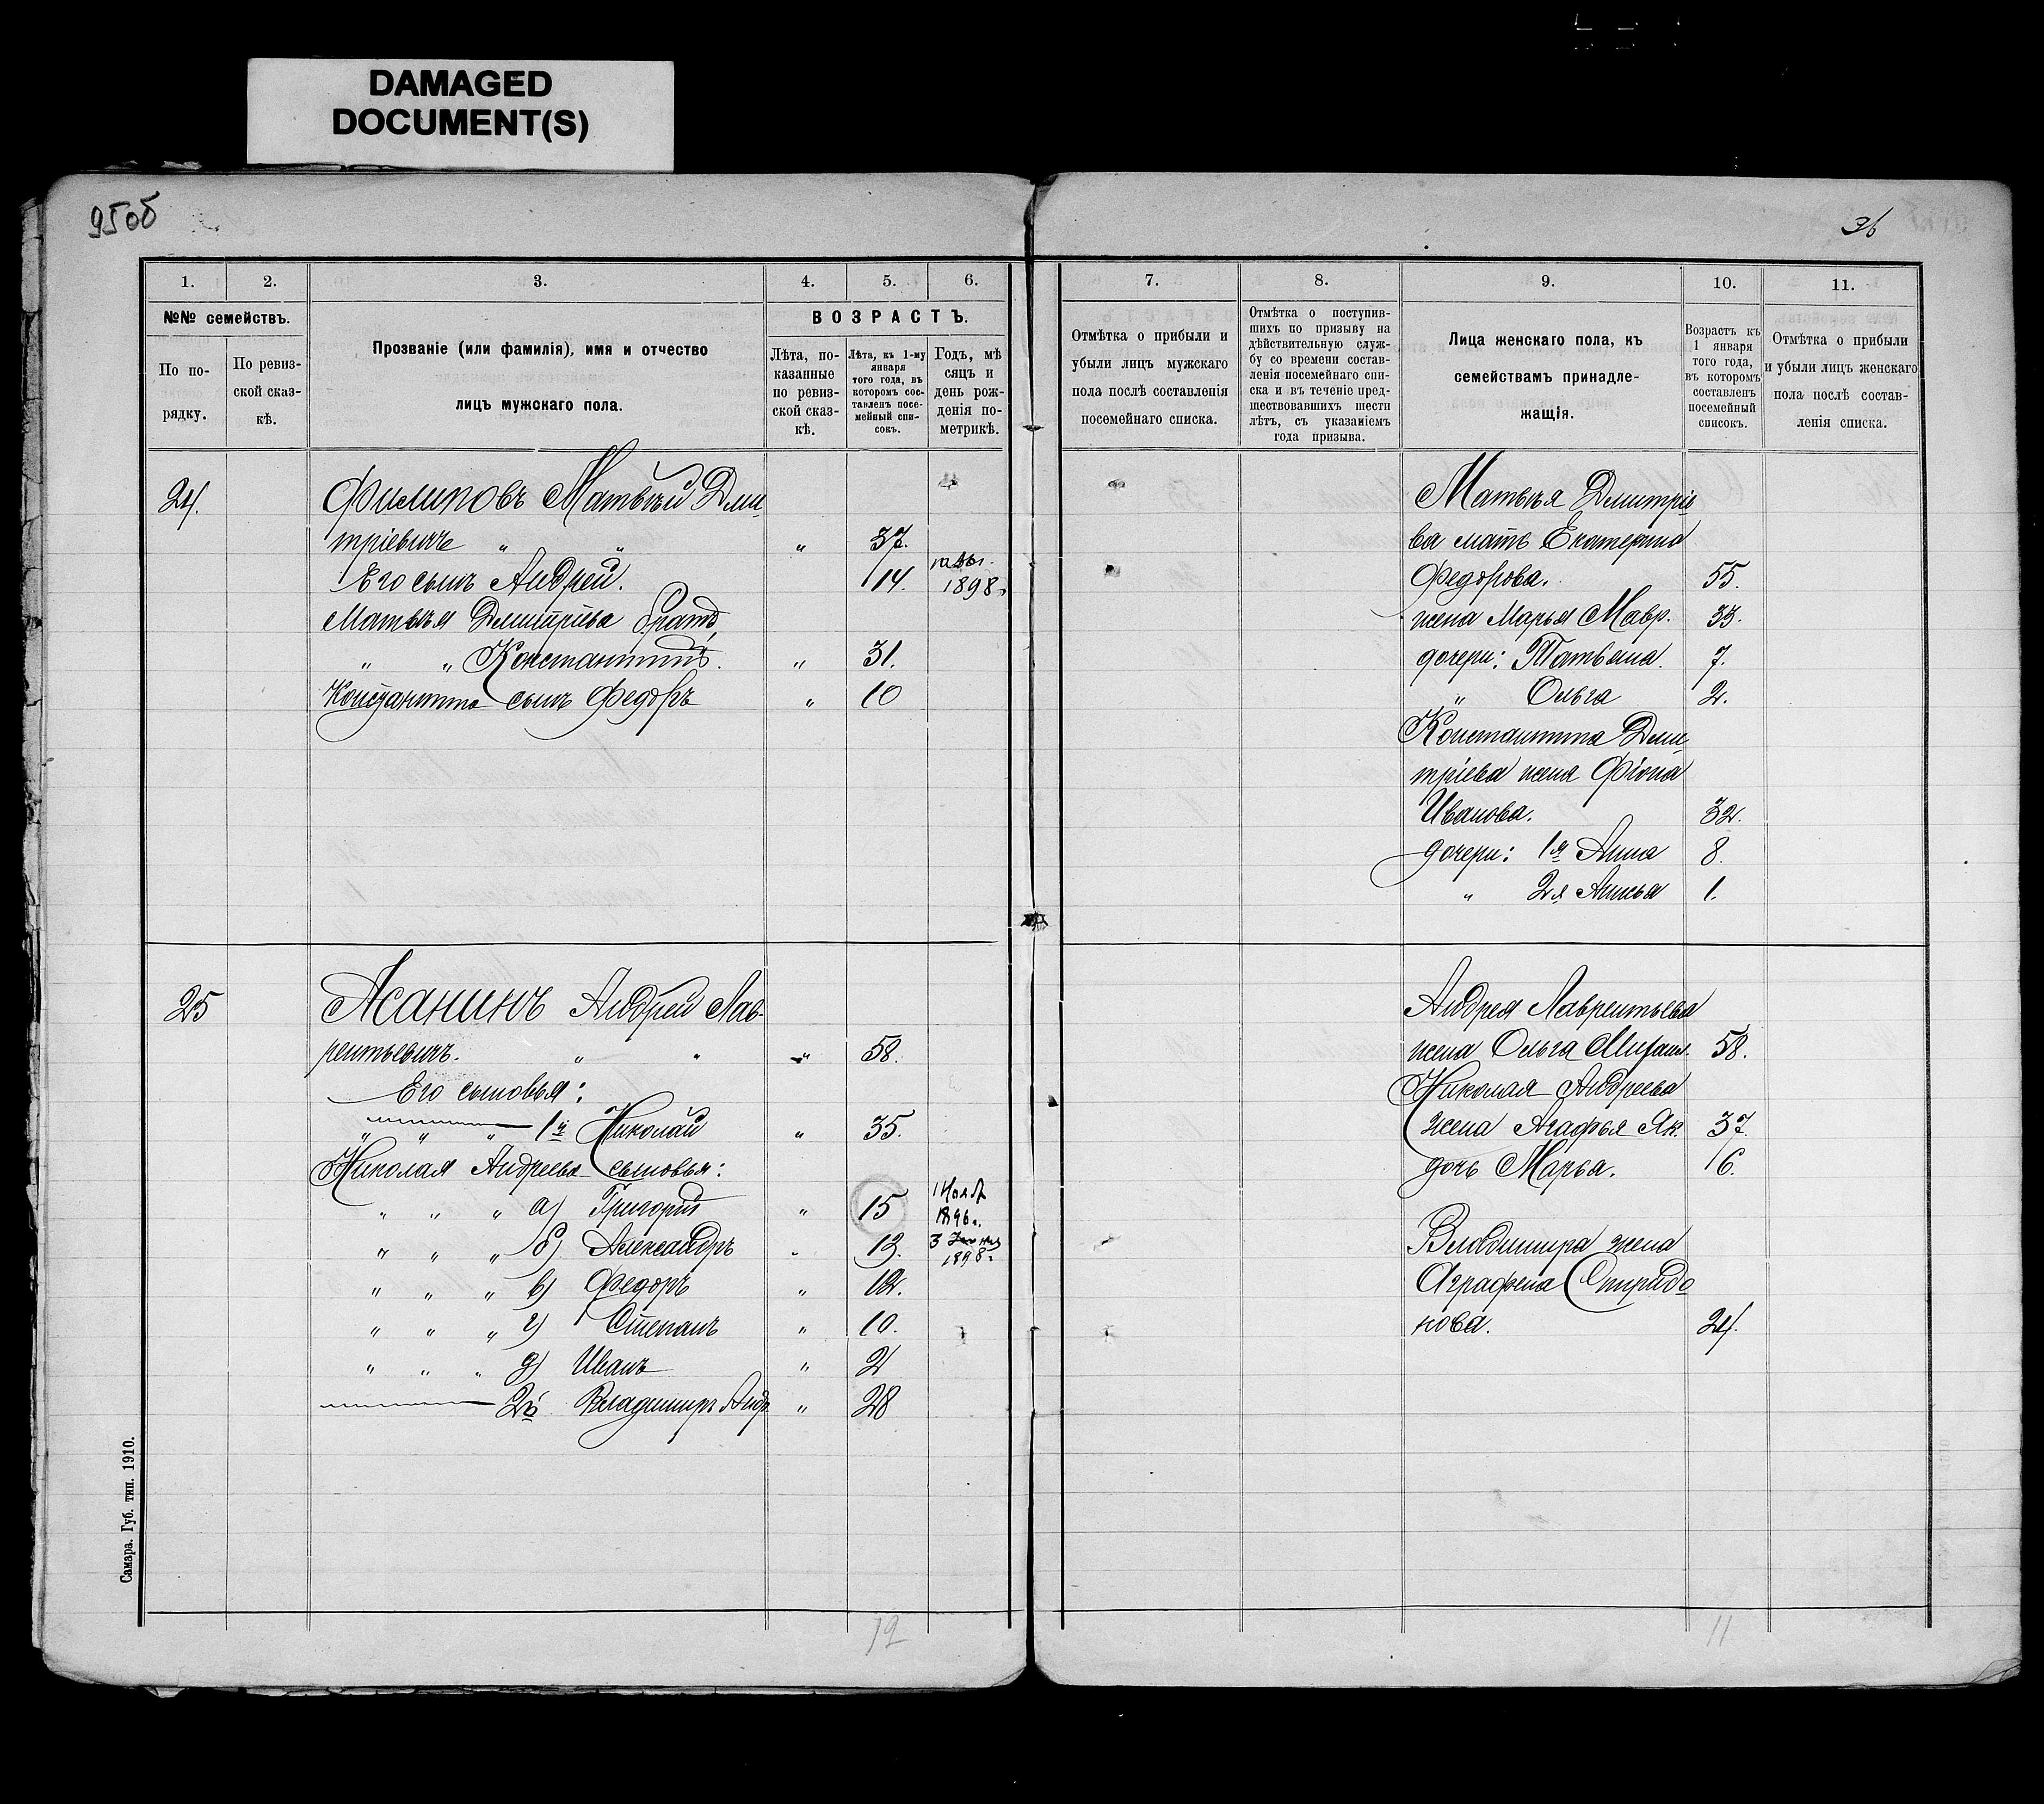 DAMAGED
DOCUMENT(S)
95об
36
1. 2. 3. 4. 5. 6.
№№ семействъ.
По по-
рядку.
По ревиз-
ской сказ-
кѣ.
Прозваніе (или фамилія), имя и отчество
лицъ мужскаго пола.
ВОЗРАСТЪ.
Лѣта, по-
казанные
по ревиз-
ской сказ-
кѣ.
Лѣта, къ 1-му
января
того года, въ
которомъ сос-
тавленъ посе-
мейный спи-
сокъ.
Годъ, мѣ
сяцъ и
день рож-
денія по-
метрикѣ.
24. Филиповъ Матвѣй Дми-
тріевичъ " " " 37.
Его сынъ Андрей. 14. 1898г.
Матвѣя Дмитріева братъ,
" " Константинъ. " 31.
Константина сынъ Федоръ " 10
25 Асанинъ Андрей Лав-
рентьевичъ. " " " 58.
Его сыновья:
" " " 1й Николай " 35.
Николая Андреева сыновья:
" " " а) Григорій " 15 1 Нояб 1896г.
" " " б) Александръ " 13. 3 1898г.
" " " в) Федоръ " 12.
" " " г) Степанъ " 10.
" " " д) Иванъ " 2
2й Владимиръ Андр. " 28
Самара. Губ. тип. 1910.
12
7. 8. 9. 10. 11.
Отмѣтка о прибыли и
убыли лицъ мужскаго
пола послѣ составленія
посемейнаго списка.
Отмѣтка о поступив-
шихъ по призыву на
дѣйствительную служ-
бу со времени состав-
ленія посемейнаго спи-
ска и въ теченіе пред-
шествовавшихъ шести
лѣтъ, съ указаніемъ
года призыва.
Лица женскаго пола, къ
семействамъ принадле-
жащія.
Возрастъ къ
1 января
того года,
въ которомъ
составленъ
посемейный
списокъ.
Отмѣтка о прибыли
и убыли лицъ женскаго
пола послѣ состав-
ленія списка.
Матвѣя Дмитріе-
ва мать Екатерина
Федорова. 55.
жена Марья Мавр. 35.
дочери: Татьяна. 7.
" Ольга 2.
Константина Дми-
тріева жена Фіона
Иванова. 32.
дочери: 1я Анна 8.
" 2я Анисья 1.
Андрея Лаврентьева
жена Ольга Михаил. 58.
Николая Андреева
жена Агафья Як. 37.
дочь Марья. 6.
Владимира жена
Аграфена Спиридо-
нова. 24.
11